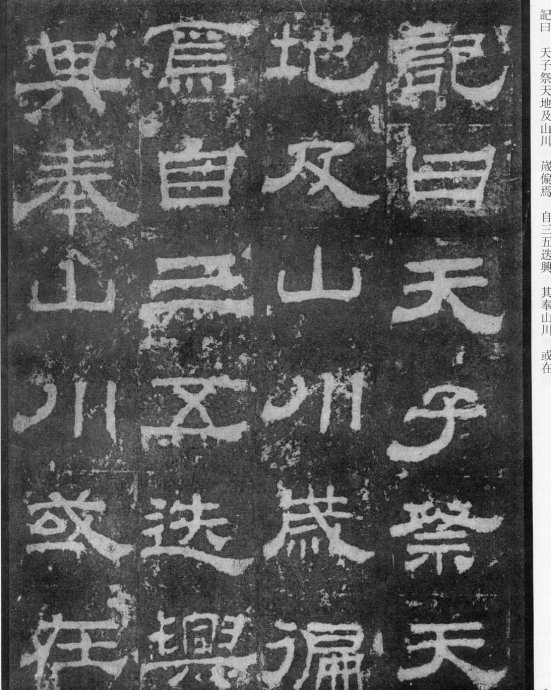 記曰　天子祭天地及山川　歳徧焉　自三五迭興　其奉山川　或在
記曰天子祭天
地及山川歳徧
焉自三五迭興
其奉山川或在